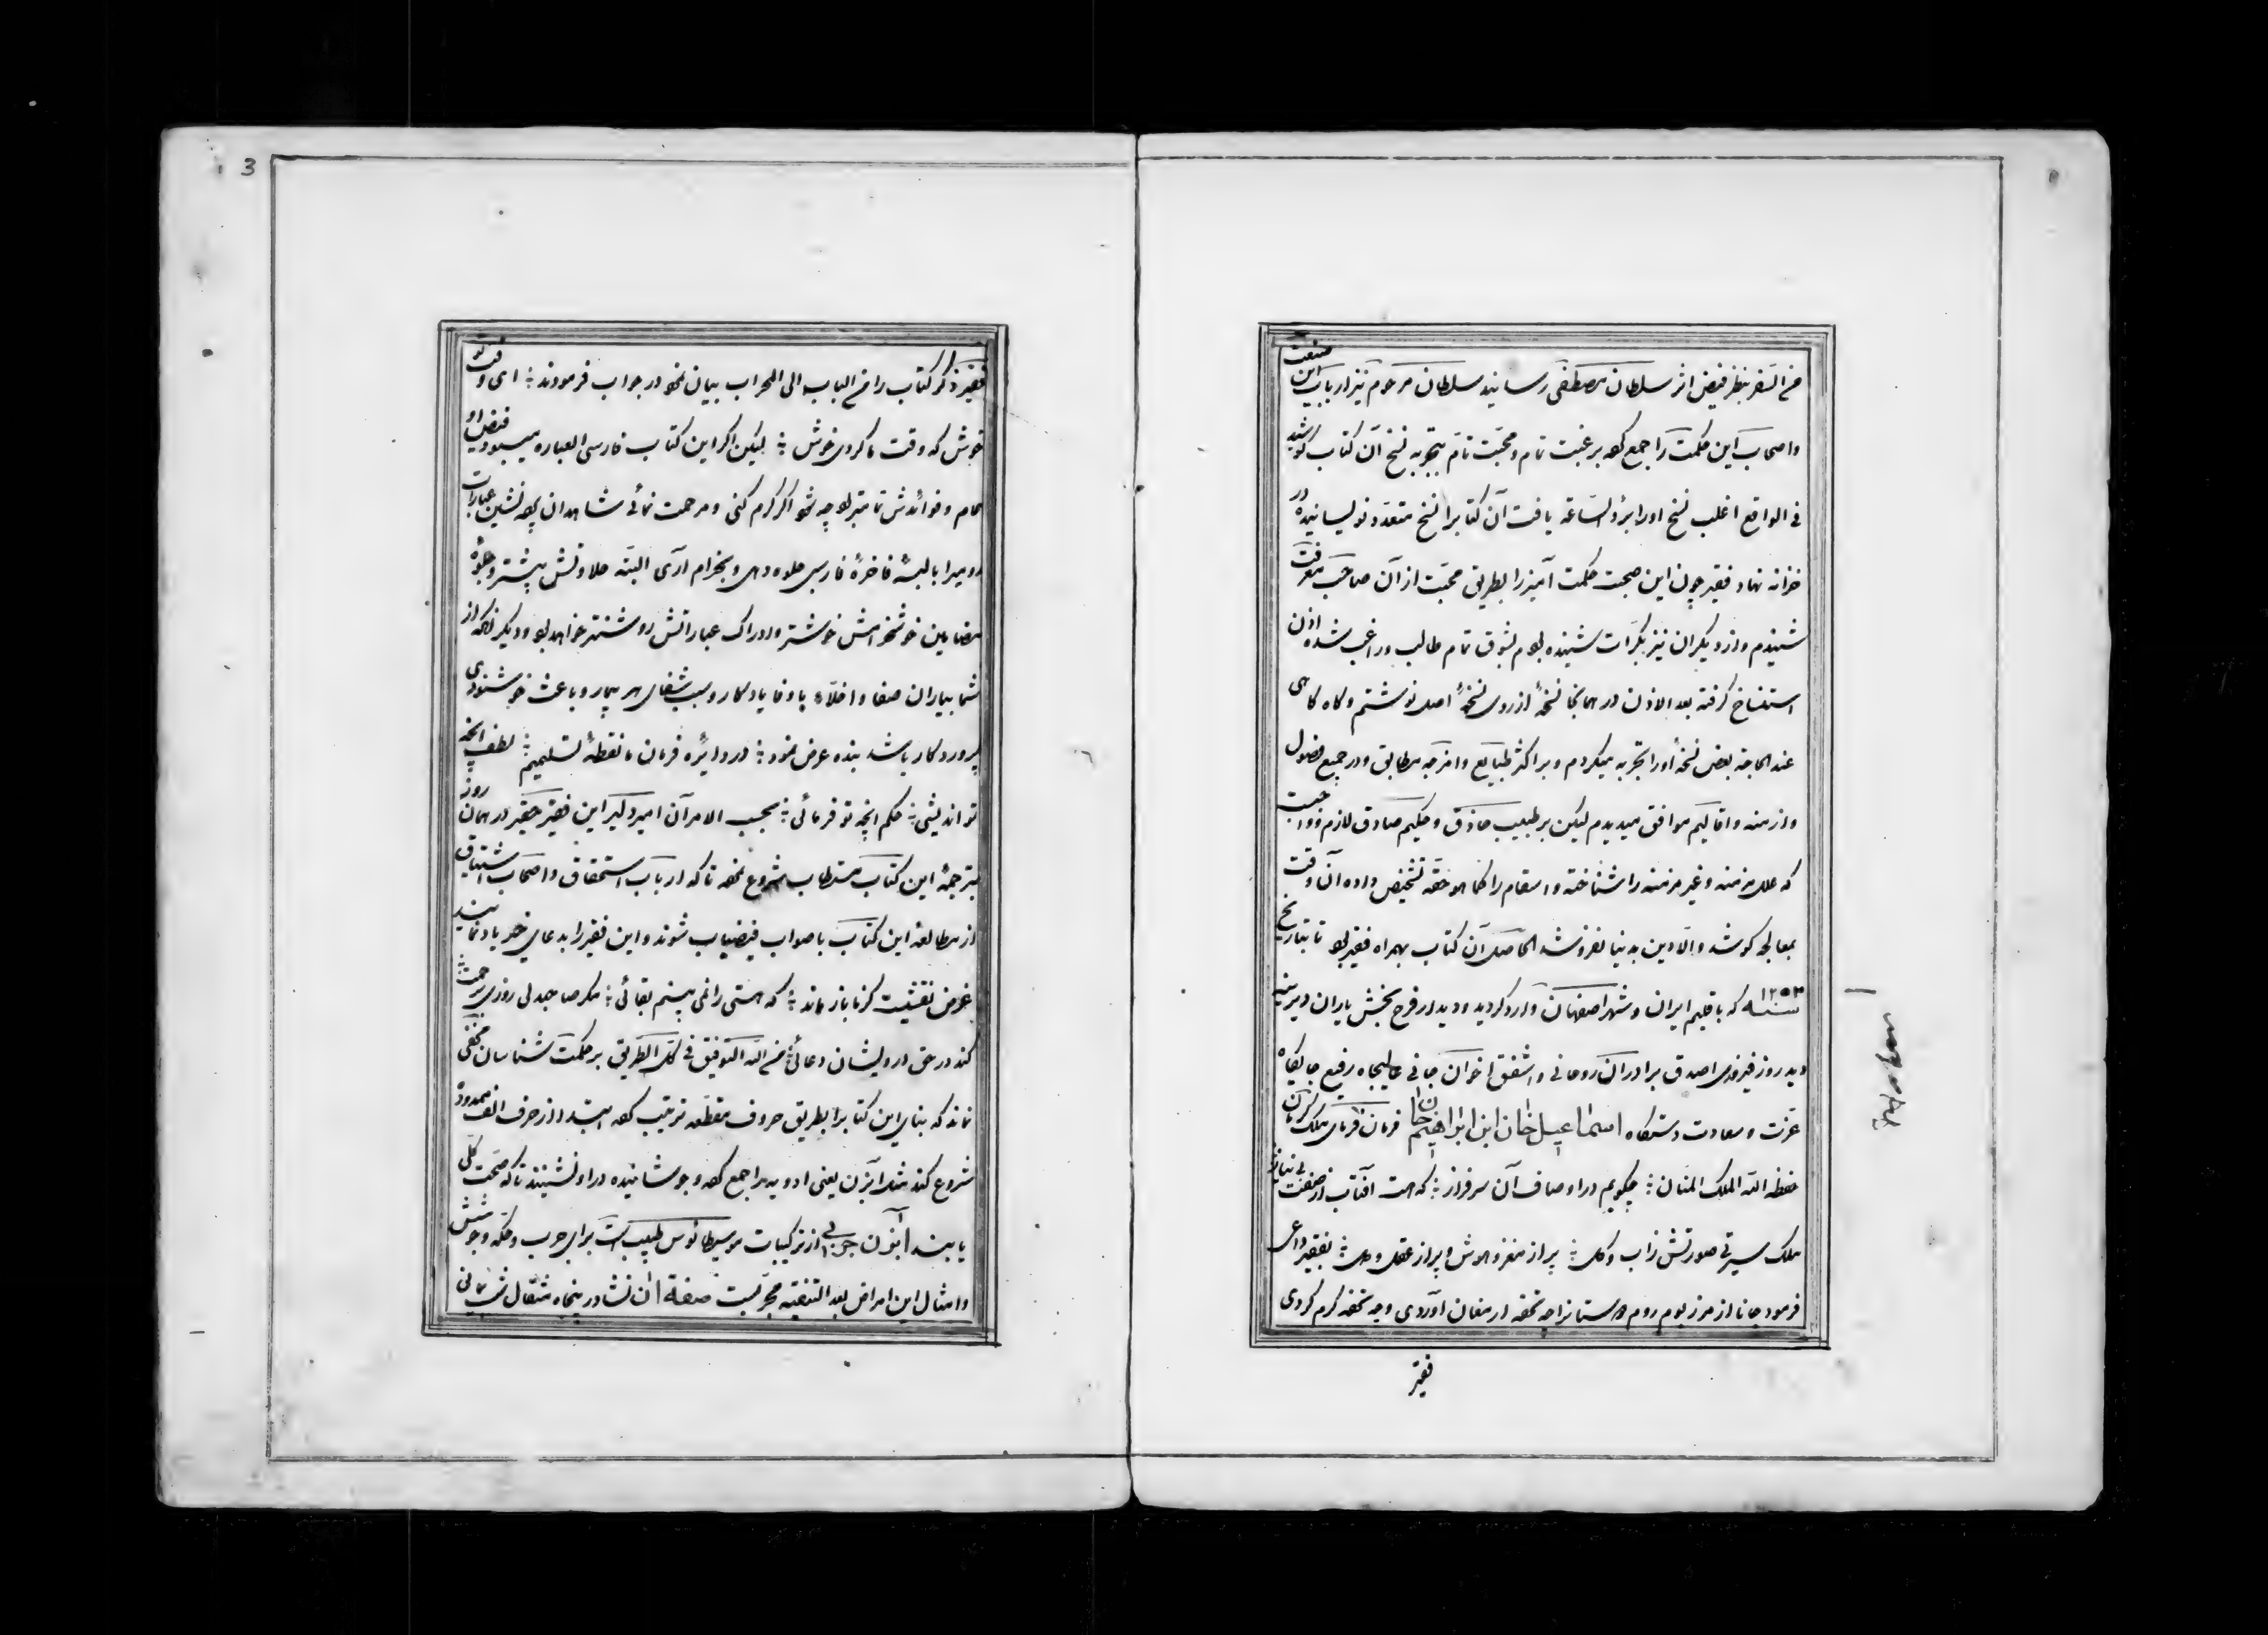 من السفر بنظر فیض اثر سلطان مصطفی رسانید سلطان مرحوم نیز ارباب این صنعت
واصحاب این حکمت را جمع کرده برغبت تمام ومحبت تام بتجربه نسخ آن کتاب کوشید
فی الواقع اغلب نسخ اورا برؤالساعه یافت آن کتابرا نسخ متعدد نویسانیده در
خزانه نهاد فقیر چون این صحبت حکمت آمیز را بطریق محبت از آن صاحب معرفت
شنیدم واز دیکران نیز بکرات شنیده بودم بشوق تمام طالب وراغب شده اذن
استنساخ کرفته بعد الاذن در همانجا نسخهٔ از روی نسخهٔ اصل نوشتم وکاه کاهی
عند الحاجة بعض نسخهٔ اورا تجربه میکردم وبر اکثر طبایع وامزجه مطابق ودر جمیع فصول
وازمنه واقالیم موافق میدیدم لیکن بر طبیب حاذق وحکیم صادق لازم وواجبست
که علل مزمنه وغیر مزمنه را شناخته واسقام را کما هو حقه تشخیص داده آن وقت
بمعالجه کوشد والا دین بدنیا نفروشد الحاصل آن کتاب بهمراه فقیر بود تا بتاریخ
سنه ١٢٥٣ که باقلیم ایران وشهر اصفهان وارد کردید ودیدار فرح بخش یاران دیرینه
دید روز فیروزی اصدق برادران روحانی واشفق اخوان جانی عالیجاه رفیع جایکاه
عزت وسعادت دستکاه اسماعیل خان ابن ابراهیم خان فرمان فرمای ملک کرمان
حفظه الله الملک المنان ؛ چکویم در اوصاف آن سرفراز ؛ که هست آفتاب از صفت بی نیاز
ملک سیرتی صورتش زاب وکل ؛ پر از مغز وهوش وپر از عقل ودل ؛ بفقیر داعی
فرمود جانا از مرز بوم روم دوستانرا چه تحفه ارمغان آوردی وچه تحفه کرم کردی
فقیر
3
فقیر ذکر کتاب را من الباب الی المحراب بیان نموده در جواب فرمودند ؛ ای وقت تو
خوش که وقت ما کردی خوش ؛ لیکن اکر این کتاب فارسی العباره میبود فیض او
عام وفوائدش تامتر بود چه شود اکر کرم کنی ومرحمت نمائی شاهدان پرده نشین عبارات
رومیرا بالبسهٔ فاخرهٔ فارسی جلوه دهی وبخرام آری البته حلاوتش بیشتر وجلوهٔ
مضامین خوشخرامش خوشتر وادراک عباراتش روشنتر خواهد بود ودیکر آنکه از
شما بیاران صفا واخلاء با وفا یادکار وسبب شفای هر بیمار وباعث خوشنودی
پروردکار باشد بنده عرض نمود ؛ در دایره فرمان ما نقطهٔ تسلیمیم ؛ لطف آنچه
تو اندیشی ؛ حکم آنچه تو فرمائی ؛ بحسب الامر آن امیر دلیر این فقیر حقیر در همان روز
بترجمهٔ این کتاب مستطاب شروع نموده تا که ارباب استحقاق واصحاب اشتیاق
از مطالعه این کتاب باصواب فیضیاب شوند واین فقیر را بدعای خیر یاد نمایند
غرض نقشیست کز ما باز ماند ؛ که هستی را نمی بینم بقائی ؛ مکر صاحبدلی روزی برحمت ؛
کند در حق درویشان دعائی ؛ من الله التوفیق فی کل الطریق بر حکمت شناسان مخفی
نماند که بنای این کتابرا بطریق حروف مقطعه ترتیب کرده ابتدا از حرف الف ممدوده
شروع کند مثلا آبزن یعنی ادویه را جمع کرده وجوشانیده در او نشینند تا که صحت کلی
یابند آبزن جربی از ترکیبات طبیب است برای جرب وحکه وجوشش
وامثال این امراض بعد التنقیه مجربست صفة آن نشادر پنجاه مثقال شب یمانی